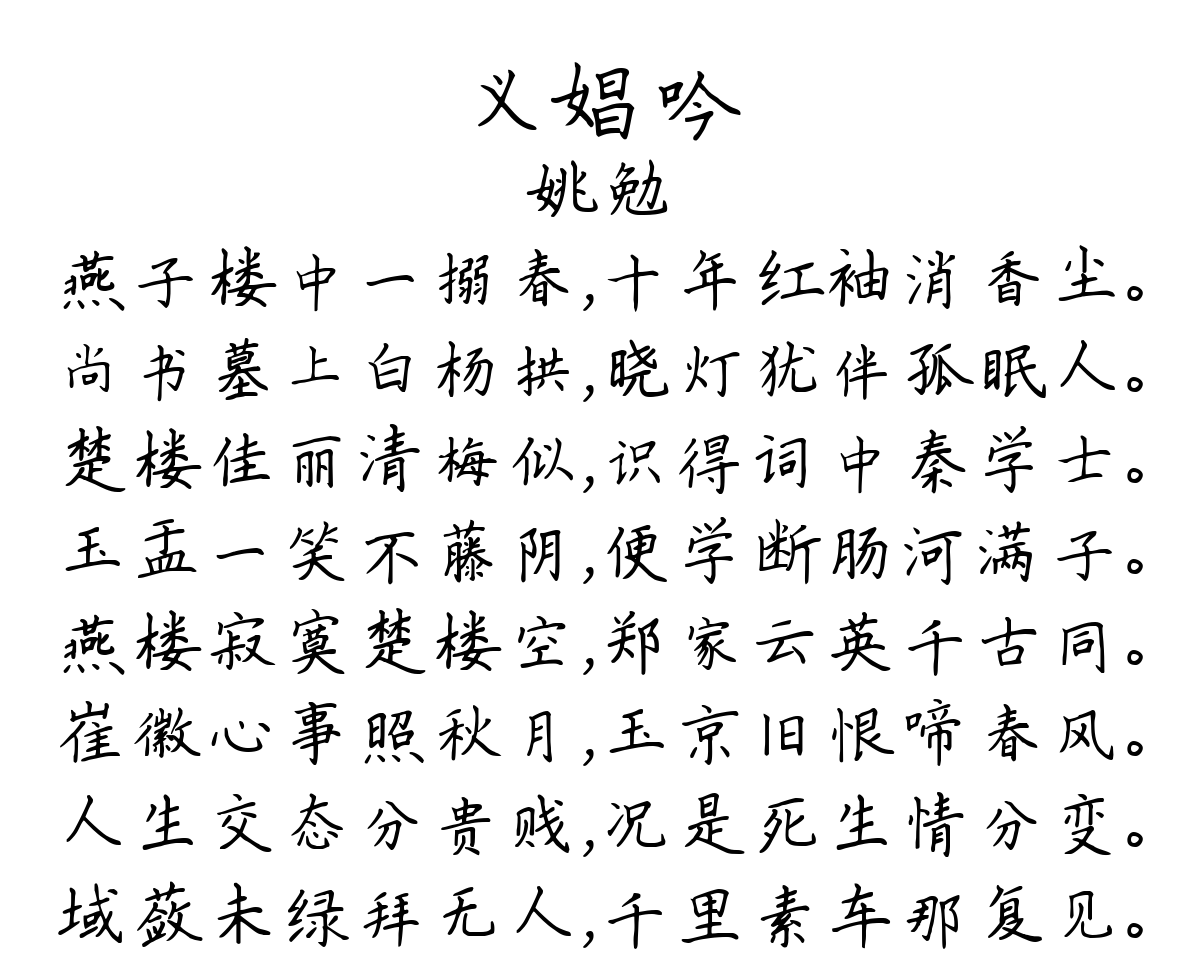 义娼吟
姚勉
燕子楼中一搦春,十年红袖消香尘。
尚书墓上白杨拱,晓灯犹伴孤眠人。
楚楼佳丽清梅似,识得词中秦学士。
玉盂一笑不藤阴,便学断肠河满子。
燕楼寂寞楚楼空,郑家云英千古同。
崔徽心事照秋月,玉京旧恨啼春风。
人生交态分贵贱,况是死生情分变。
域蔹未绿拜无人,千里素车那复见。